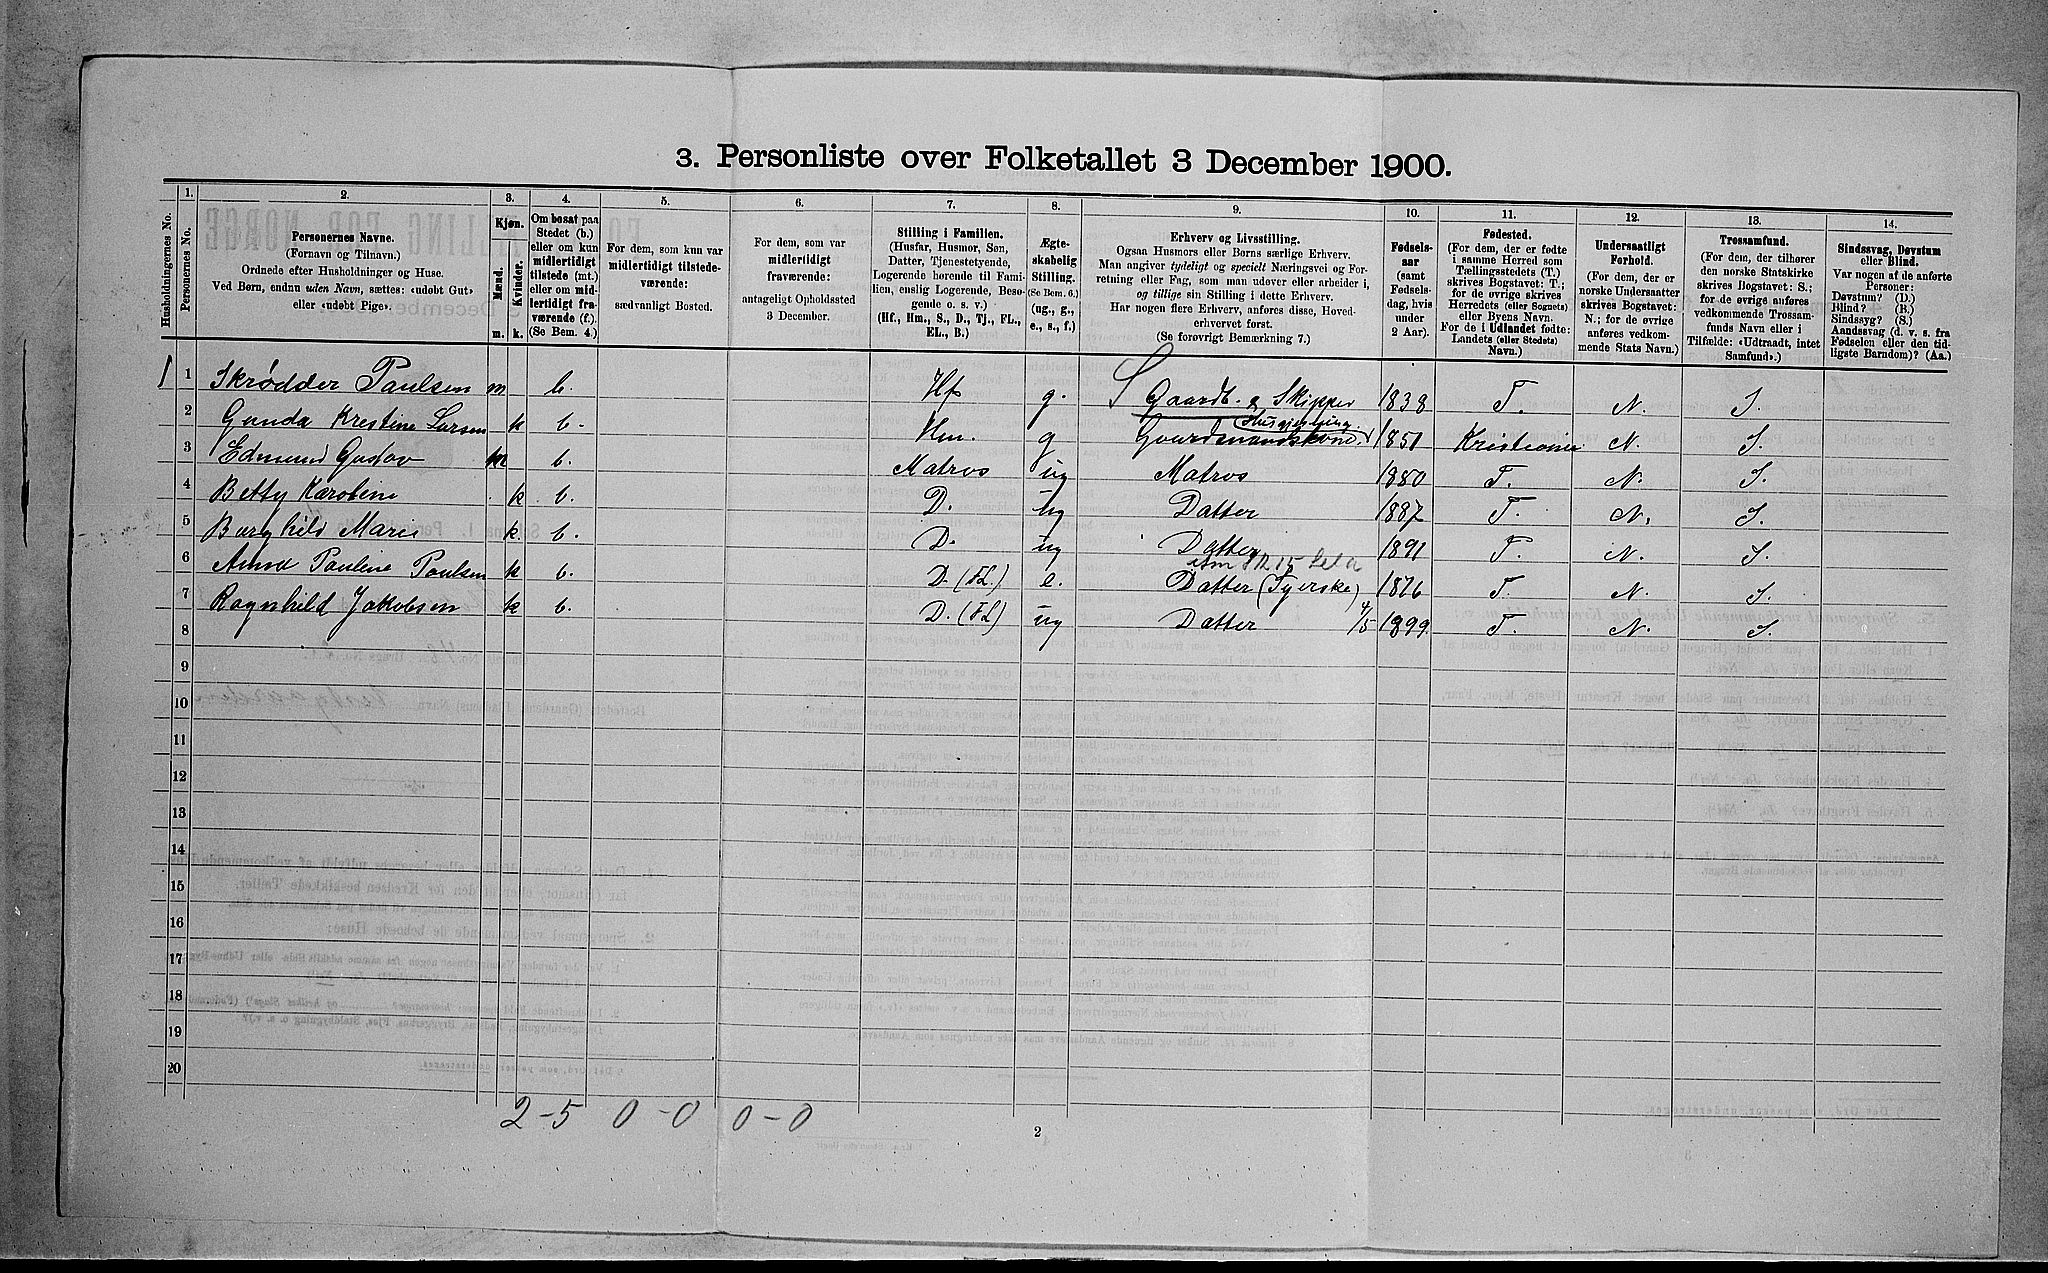 3. Personliste over Folketallet 3 December 1900.
Husholdningernes No.
1.
Personernes No.
2.
Personernes Navne.
(Fornavn og Tilnavn.)
Ordnede efter Husholdninger og Huse.
Ved Børn, endnu uden Navn, sættes: «udøbt Gut»
eller «udøbt Pige».
3.
Kjøn.
Mænd.
Kvinder.
m. k.
4.
Om bosat paa
Stedet (b.)
eller om kun
midlertidigt
tilstede (mt.)
eller om mid-
lertidigt fra-
værende (f.).
(Se Bem. 4.)
5.
For dem, som kun var
midlertidigt tilstede-
værende:
sædvanligt Bosted.
6.
For dem, som var
midlertidigt
fraværende:
antageligt Opholdssted
3 December.
7.
Stilling i Familien.
(Husfar, Husmor, Søn,
Datter, Tjenestetyende,
Logerende hørende til Fami-
lien, enslig Logerende, Besø-
gende o. s. v.)
(Hf., Hm., S., D., Tj., FL.,
EL., B.)
8.
Ægte-
skabelig
Stilling.
(Se Bem. 6.)
(ug., g.,
e., s., f.)
9.
Erhverv og Livsstilling.
Ogsaa Husmors eller Børns særlige Erhverv.
Man angiver tydeligt og specielt Næringsvei og For-
retning eller Fag, som man udøver eller arbeider i,
og tillige sin Stilling i dette Erhverv.
Har nogen flere Erhverv, anføres disse, Hoved-
erhvervet først.
(Se forøvrigt Bemærkning 7.)
10.
Fødsels-
aar
(samt
Fødsels-
dag, hvis
under
2 Aar).
11.
Fødested.
(For dem, der er fødte
i samme Herred som
Tællingsstedets (T.)
skrives Bogstavet: T.;
for de øvrige skrives
Herredets (eller Sognets)
eller Byens Navn.
For de i Udlandet fødte:
Landets (eller Stedets)
Navn.)
12.
Undersaatligt
Forhold.
(For dem, der er
norske Undersaatter
skrives Bogstavet:
N.; for de øvrige
anføres vedkom-
mende Stats Navn.)
13.
Trossamfund.
(For dem, der tilhører
den norske Statskirke
skrives Bogstavet: S.;
for de øvrige anføres
vedkommende Trossam-
funds Navn eller i
Tilfælde: «Udtraadt, intet
Samfund».)
14.
Sindssvag, Døvstum
eller Blind.
Var nogen af de anførte
Personer:
Døvstum? (D.)
Blind? (B.)
Sindssyg? (S.)
Aandssvag (d. v. s. fra
Fødselen eller den tid-
ligste Barndom)? (Aa.)
1 1 Skrødder Paulsen m b. Hf g. S Gaardb. & Skipper 1838 T. N. S.
2 Gunda Krestine Larsen k b. Hm. g Husgjerning.
Gaardmandskone 1851 Kristiania N. S.
3 Edmund Gustav m b. Matros ug Matros 1880 T. N. S.
4 Betty Karoline k b. D. ug Datter 1887 T. N. S.
5 Borghild Marie k. b. D. ug Datter 1891 T. N. S.
6 Pauline Paulsen k b. D. (FL.) e. Datter (Syerske) 1876 T. N. S.
7 Ragnhild Jakobsen k b. D. (FL) ug Datter 4/5 1899. T. N. S.
8
9
10
11
12
13
14
15
16
17
18
19
20
2-5 0-0 0-0
2